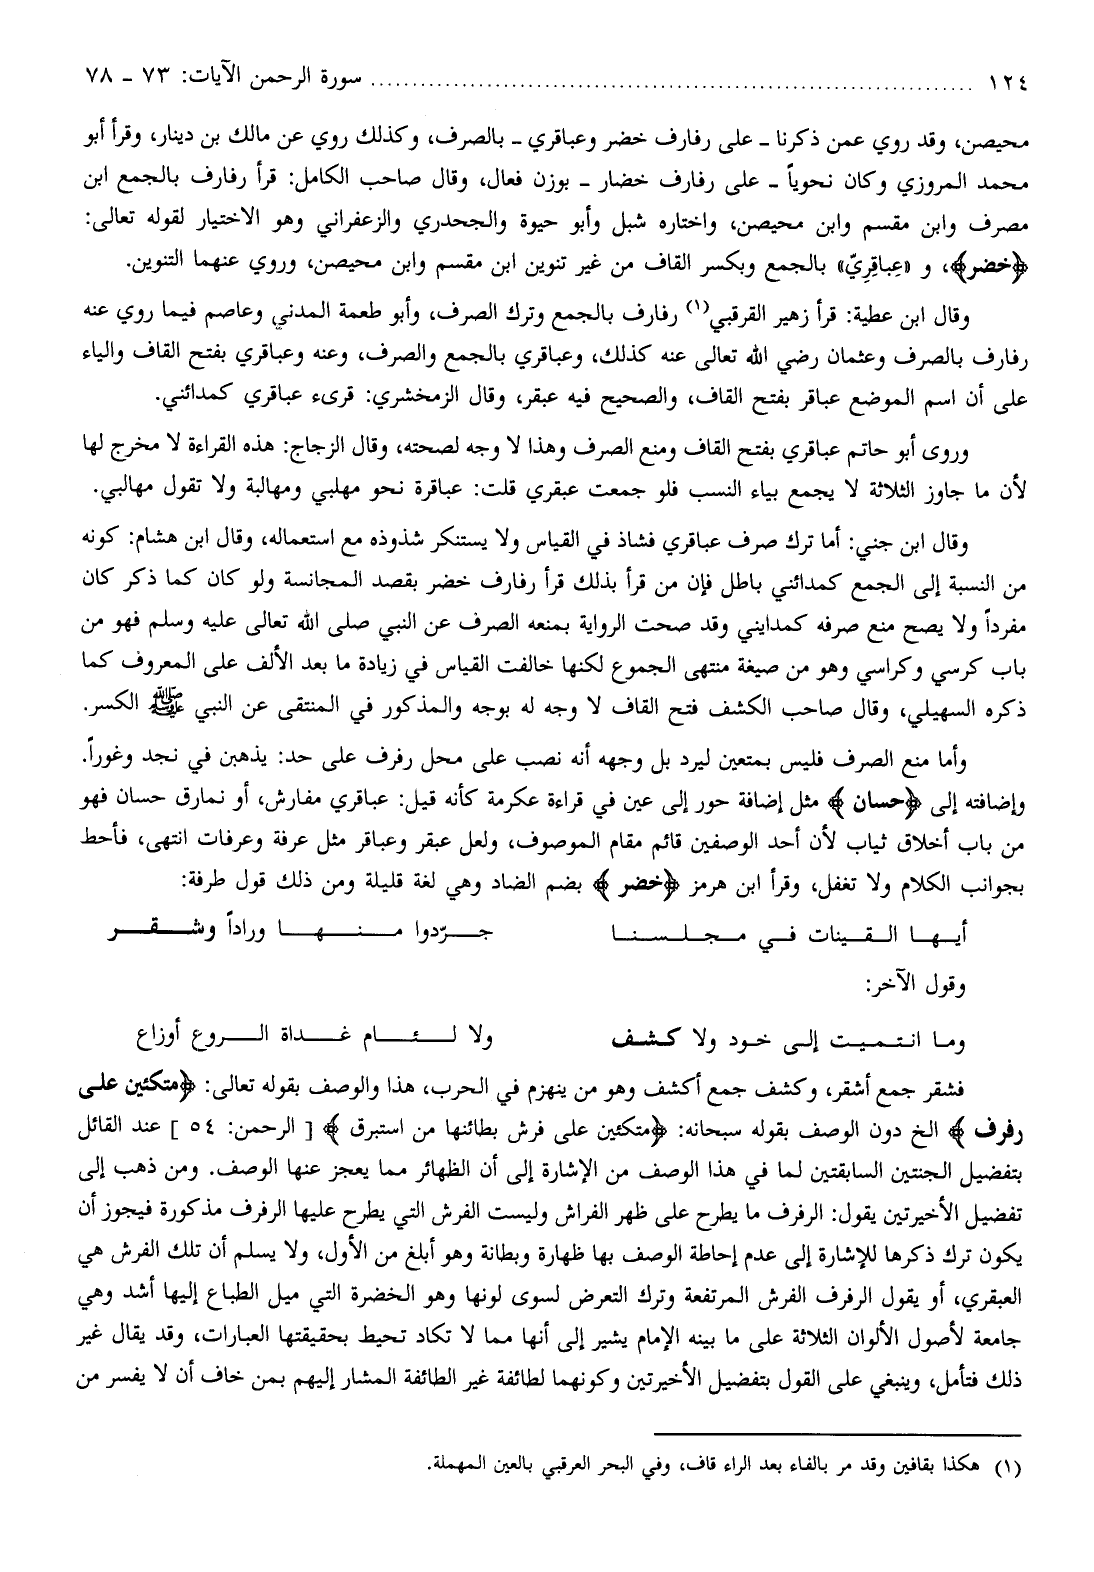 ١٢٤ ........ سورة الرحمن الآيات: ٧٣ ـ ٧٨
محيصن، وقد روي عمن ذكرنا ـ على رفارف خضر وعباقري ـ بالصرف، وكذلك روي عن مالك بن دينار، وقرأ أبو
محمد المروزي وكان نحوياً ـ على رفارف خضار ـ بوزن فعال، وقال صاحب الكامل: قرأ رفارف بالجمع ابن
مصرف وابن مقسم وابن محيصن، واختاره شبل وأبو حيوة والجحدري والزعفراني وهو الاختيار لقوله تعالى:
﴿خضر﴾، و «عِباقِريّ» بالجمع وبكسر القاف من غير تنوين ابن مقسم وابن محيصن، وروي عنهما التنوين.
وقال ابن عطية: قرأ زهير القرقبي(١) رفارف بالجمع وترك الصرف، وأبو طعمة المدني وعاصم فيما روي عنه
رفارف بالصرف وعثمان رضي الله تعالى عنه كذلك، وعباقري بالجمع والصرف، وعنه وعباقري بفتح القاف والياء
على أن اسم الموضع عباقر بفتح القاف، والصحيح فيه عبقر، وقال الزمخشري: قرىء عباقري كمدائني.
وروى أبو حاتم عباقري بفتح القاف ومنع الصرف وهذا لا وجه لصحته، وقال الزجاج: هذه القراءة لا مخرج لها
لأن ما جاوز الثلاثة لا يجمع بياء النسب فلو جمعت عبقري قلت: عباقرة نحو مهلبي ومهالبة ولا تقول مهالبي.
وقال ابن جني: أما ترك صرف عباقري فشاذ في القياس ولا يستنكر شذوذه مع استعماله، وقال ابن هشام: كونه
من النسبة إلى الجمع كمدائني باطل فإن من قرأ بذلك قرأ رفارف خضر بقصد المجانسة ولو كان كما ذكر كان
مفرداً ولا يصح منع صرفه كمدايني وقد صحت الرواية بمنعه الصرف عن النبي صلى الله تعالى عليه وسلم فهو من
باب كرسي وكراسي وهو من صيغة منتهى الجموع لكنها خالفت القياس في زيادة ما بعد الألف على المعروف كما
ذكره السهيلي، وقال صاحب الكشف فتح القاف لا وجه له بوجه والمذكور في المنتقى عن النبي ﷺ الكسر.
وأما منع الصرف فليس بمتعين ليرد بل وجهه أنه نصب على محل رفرف على حد: يذهبن في نجد وغوراً.
وإضافته إلى ﴿حسان﴾ مثل إضافة حور إلى عين في قراءة عكرمة كأنه قيل: عباقري مفارش، أو نمارق حسان فهو
من باب أخلاق ثياب لأن أحد الوصفين قائم مقام الموصوف، ولعل عبقر وعباقر مثل عرفة وعرفات انتهى، فأحط
بجوانب الكلام ولا تغفل، وقرأ ابن هرمز ﴿خضر﴾ بضم الضاد وهي لغة قليلة ومن ذلك قول طرفة:
أيها القينات في مجلسنا جرّدوا منها وراداً وشقر
وقول الآخر:
وما انتميت إلى خود ولا كشف ولا لئام غداة الروع أوزاع
فشقر جمع أشقر، وكشف جمع أكشف وهو من ينهزم في الحرب، هذا والوصف بقوله تعالى: ﴿متكئين على
رفرف﴾ الخ دون الوصف بقوله سبحانه: ﴿متكئين على فرش بطائنها من استبرق﴾ [الرحمن: ٥٤] عند القائل
بتفضيل الجنتين السابقتين لما في هذا الوصف من الإشارة إلى أن الظهائر مما يعجز عنها الوصف. ومن ذهب إلى
تفضيل الأخيرتين يقول: الرفرف ما يطرح على ظهر الفراش وليست الفرش التي يطرح عليها الرفرف مذكورة فيجوز أن
يكون ترك ذكرها للإشارة إلى عدم إحاطة الوصف بها ظهارة وبطانة وهو أبلغ من الأول، ولا يسلم أن تلك الفرش هي
العبقري، أو يقول الرفرف الفرش المرتفعة وترك التعرض لسوى لونها وهو الخضرة التي ميل الطباع إليها أشد وهي
جامعة لأصول الألوان الثلاثة على ما بينه الإمام يشير إلى أنها مما لا تكاد تحيط بحقيقتها العبارات، وقد يقال غير
ذلك فتأمل، وينبغي على القول بتفضيل الأخيرتين وكونهما لطائفة غير الطائفة المشار إليهم بمن خاف أن لا يفسر من
(١) هكذا بقافين وقد مر بالفاء بعد الراء قاف، وفي البحر العرقبي بالعين المهملة.